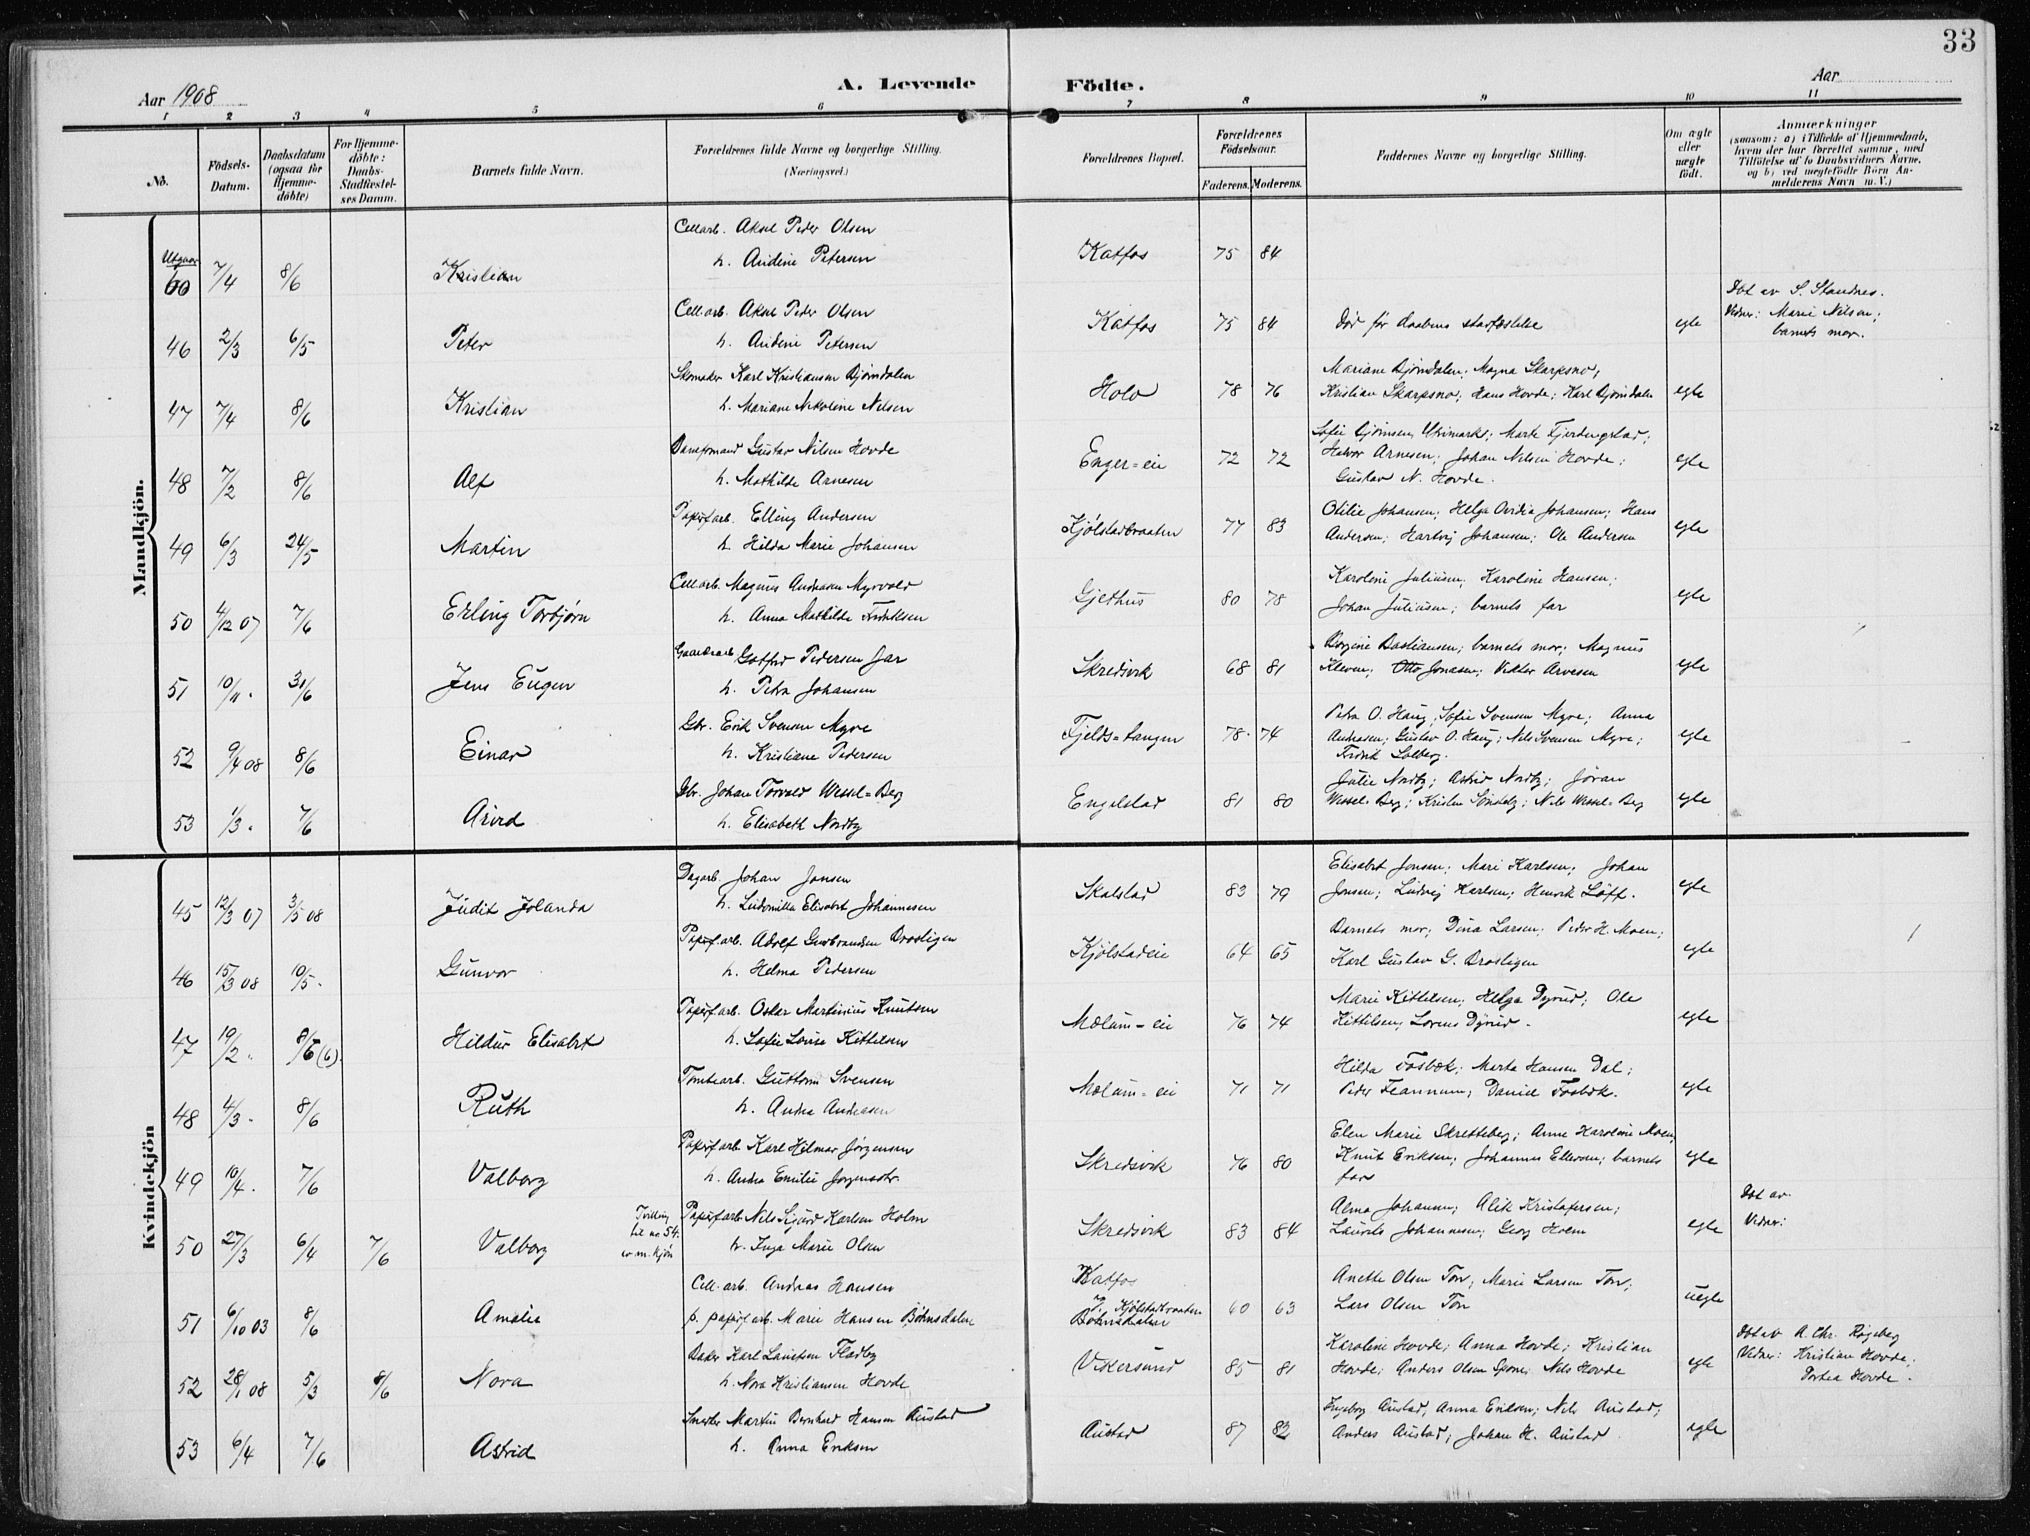 33
Aar 1908
A. Levende Födte.
Aar
1 2 3 4 5 6 7 8 9 10 11
No.
Födsels-Datum.
Daabsdatum (ogsaa for Hjemme-døbte)
For Hjemme-døbte: Daabs-Stadfæstel-ses Datum.
Barnets fulde Navn.
Forældrenes fulde Navne og borgerlige Stilling. (Næringsvei.)
Forældrenes Bopæl.
Forældrenes Födselsaar.
Faderens. Moderens.
Faddernes Navne og borgerlige Stilling.
Om ægte eller uægte födt.
Anmærkninger
(saasom: a) i Tilfælde af Hjemmedaab, hvem der har forrettet samme, med Tilföielse af to Daabsvidners Navne, og b) ved uægtefödte Börn An-melderens Navn m. V.)
Mandkjön.
Utgaar 7/4 8/6 Kristian Cell.arb. Aksel Peder Olsen
h. Andine Petersen Katfos 75 84
46 2/3 6/5 Peter Cell.arb. Aksel Peder Olsen
h. Andine Petersen Katfos 75 84 Død før daabens stadfæstelse egte Døbt av S. Standnes.
Vidner: Marie Nilsen;
barnets mor.
47 7/4 8/6 Kristian Skomaker Karl Kristiansen Bjørndalen
h. Mariane Nikoline Nilsen Holo 78 76 Mariane Bjørndalen; Magna Skarpsno;
Kristian Skarpsno; Hans Hovde; Karl Bjørndalen egte
48 7/2 8/6 Alf Gustav Nilsen Hovde
h. Mathilde Arnesen Enger=eie 72 72 Marte Fjerdingstad;
Halvor Arnesen; Johan Nilsen Hovde;
Gustav N. Hovde. egte
49 6/3 24/5 Martin Papirf.arb. Elling Andersen
h. Hilda Marie Johansen Kjølstadbraaten 77 83 Otilie Johansen; Helga Ovidia Johansen; Hans
Andersen; Hartvig Johansen; Ole Andersen egte
50 4/12 07 7/6 Erling Torbjørn Cell.arb. Magnus Andresen Myrvold
h. Anna Mathilde Fredriksen Gjethus 80 78 Karoline Juliusen; Karoline Hansen;
Johan Juliusen; barnets far egte
51 10/11 " Jens Eugen Gotfred Pedersen Jar
h. Petra Johansen Skredsvik 68 81 Borgine Bastiansen; barnets mor; Magnus
Kleven; Otto Jonasen; Viktor Arvesen egte
52 9/4 08 8/6 Einar Gbr. Erik Svensen Myre
h. Kristiane Pedersen Fjelds=tangen 78 74 Petra O. Haug; Sofie Svensen Myre; Anna
Andreasen; Gustav O. Haug; Nils Svensen Myre;
Fredrik Solberg. egte
53 1/3 " 7/6 Arvid Gbr. Johan Torvald Wessel=Berg
h. Elisabeth Nordby Engelstad 81 80 Julie Nordby; Astrid Nordby; Jøran
Wessel=Berg; Kristen Nils Wessel=Berg egte
Kvindekjön
45 12/3 07 3/5 08 Judit Jolanda Dagarb. Johan Jonsen
h. Ludomilla Elisabet Johannesen Skalstad 83 79 Elisabet Jonsen; Marie Karlsen; Johan
Jonsen; Ludvig Karlsen; Henrik Løff. egte
46 15/3 08 10/5 " Gunvor Papirf.arb. Adolf Gudbrandsen Brostigen
h. Helma Pedersen Kjølstadeie 64 65 Barnets mor; Dina Larsen; Peder H. Moen;
Karl Gustav G. Brostigen egte
47 19/2 " 8/6 (6) Hildur Elisabet Papirf.arb. Oskar Martinius Knutsen
h. Sofie Louise Kittelsen Mælum=eie 76 74 Marie Kittelsen; Helga Dyrud; Ole
Kittelsen; Lorens Dyrud. egte
48 4/3 " 8/6 Ruth Tomtearb. Guttorm Svensen
h. Andrea Andreasen Mælum=eie 71 71 Hilda Fosbæk; Marta Hansen Dal;
Peder Daniel Fosbæk. egte
49 10/4 " 7/6 Valborg Papirf.arb. Karl Hilmar Jørgensen
h. Andrea Emilie Skredsvik 76 80 Elen Marie Skretteberg; Anne Karoline Moen;
Knut Eriksen; Johannes Ellevsen; barnets
far egte
50 27/3 6/4 7/6 Valborg Tvilling til no 54 av m.kjøn Papirf.arb. Nils Sigurd Karlsen Holm
h. Inga Marie Olsen Skredsvik 83 84 Alma Johansen; Alik Kristofersen;
Laurits Johannesen; Georg Hoem egte Døbt av
Vidner:
51 6/10 03 8/6 Amalie Cell.arb. Andreas Hansen
p. papirf.arb. Marie Hansen Bøhnsdalen Katfos
p. Kjølstadbraaten
Bøhnsdalen 60 63 Anette Olsen Ton; Marie Larsen Ton;
Lars Olsen Ton uegte
52 28/1 08 5/3 8/6 Nora Baker Karl Lauritsen Fladby
h. Nora Kristiansen Hovde Vikersund 85 81 Karoline Hovde; Anna Hovde; Kristian
Hovde; Anders Olsen Nils Hovde egte Døbt av A. Chr. Røgeberg
Vidner: Kristian Hovde;
Hovde.
53 6/4 7/6 Astrid Martin Bernhard Hansen Austad
h. Anna Eriksen Austad 87 82 Ingeborg Austad; Anna Eriksen; Nils Austad;
Anders Austad; Johan H. Austad. egte